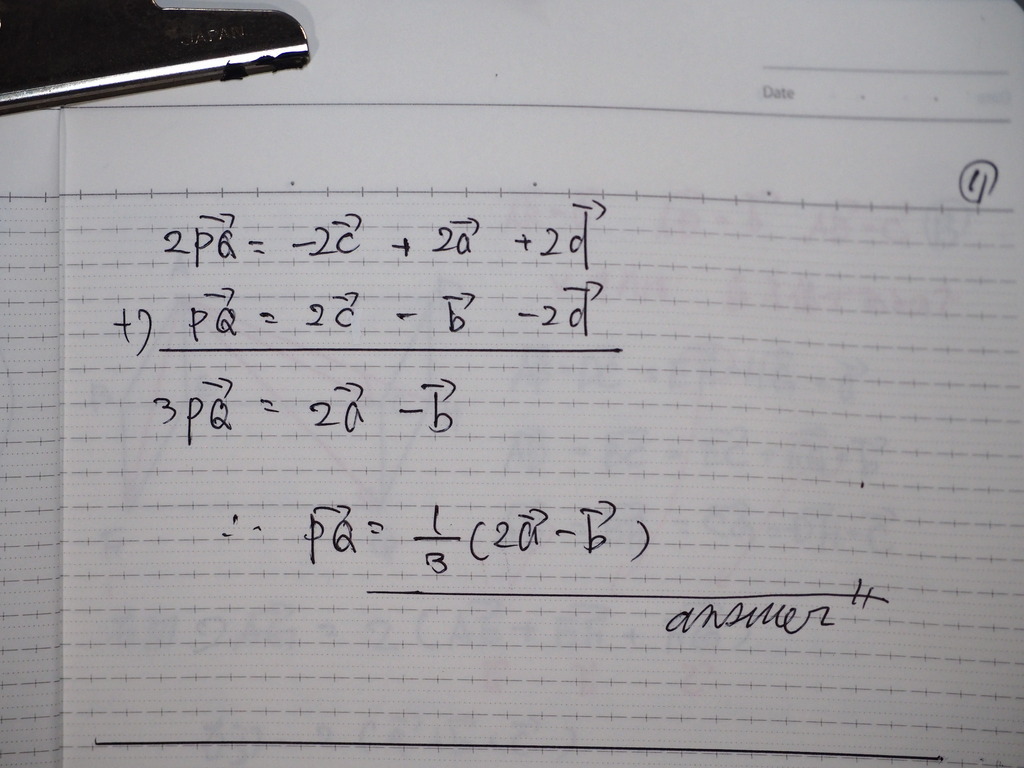 JAPAN
Date
④
2PQ⃗ = -2c⃗ + 2a⃗ + 2d⃗
+) PQ⃗ = 2c⃗ - b⃗ - 2d⃗
3PQ⃗ = 2a⃗ - b⃗
∴ PQ⃗ = 1/3 (2a⃗ - b⃗)
answer